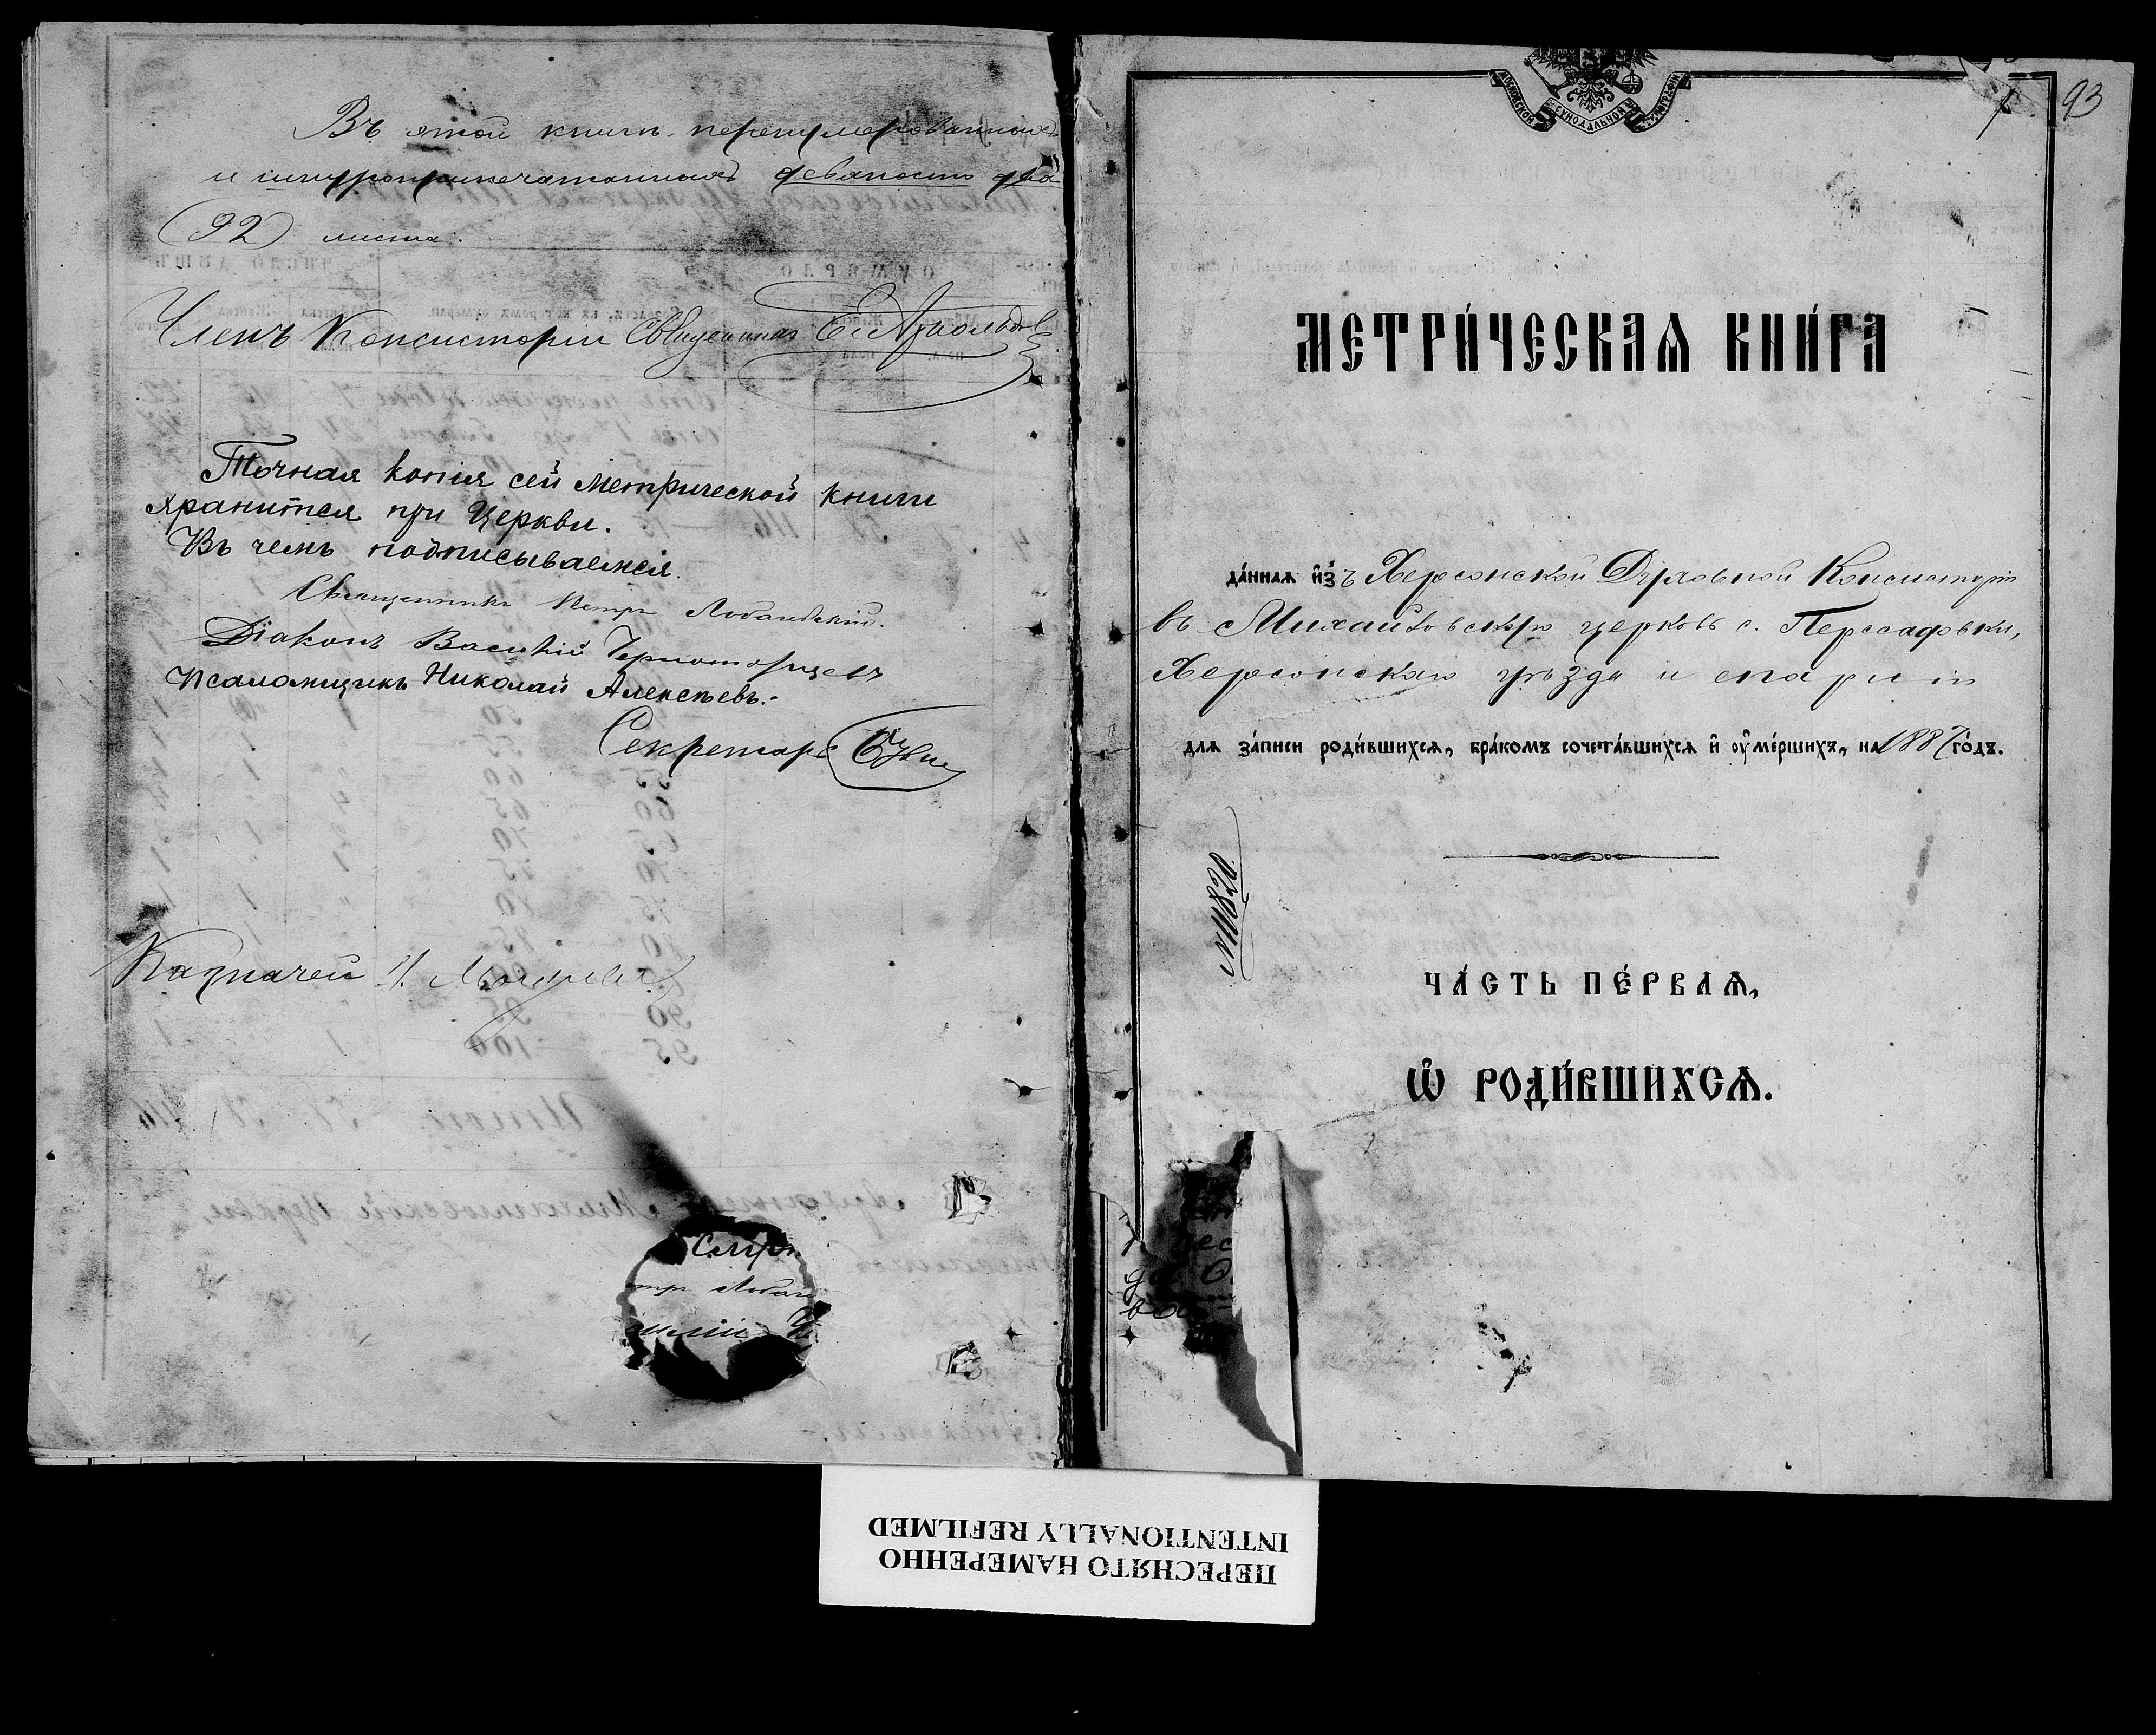 Въ этой книгѣ перенумерованныхъ
и шнуроприпечатанныхъ девяносто два
(92) листа.
Членъ Консисторіи Священникъ
Точная копія сей метрической книги
хранится при Церкви.
Въ чемъ подписываемся.
Священникъ Петръ
Діаконъ Василій Черноморцевъ
Псаломщикъ Николай Алексѣевъ.-
Секретарь
Казначей
93
МОСКОВСКОЙ СѴНОДАЛЬНОЙ ТИПОГРАФІИ
МЕТРИ́ЧЕСКАѦ КНИ́ГА
да́ннаѧ и҆зъ Херсонской Духовной Консисторіи
въ Михайловскую церковь с.
Херсонскаго уѣзда и епархіи
для за́писи роди́вшихсѧ, бра́комъ сочета́вшихсѧ и҆ оу҆ме́ршихъ, на 1887 го́дъ.
№ 11820.
ЧА́СТЬ ПЕ́РВАѦ,
Ѡ҆ РОДИ́ВШИХСѦ.
ПЕРЕСНЯТО НАМЕРЕННО
INTENTIONALLY REFILMED